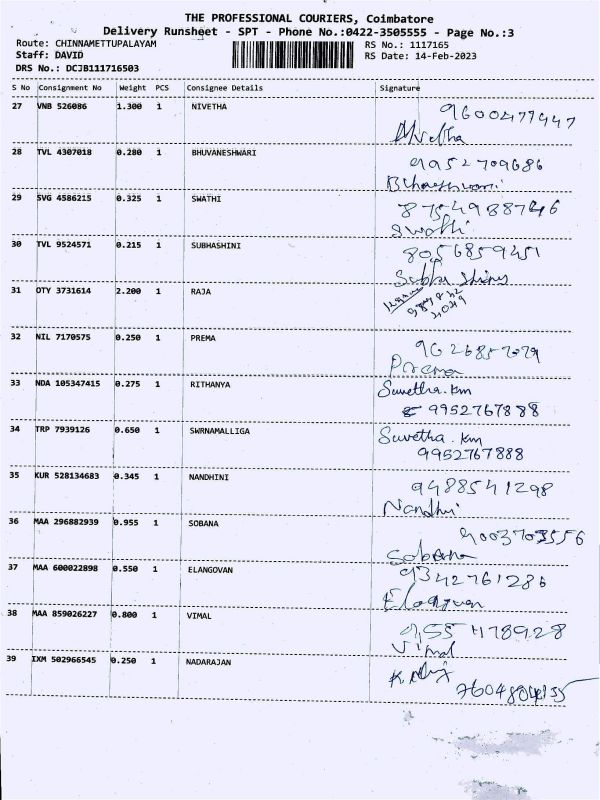 THE PROFESSIONAL COURIERS, Coimbatore
Delivery Runsheet - SPT - Phone No.:0422-3505555 - Page No.:3
Route: CHINNAMETTUPALAYAM RS No.: 1117165
Staff: DAVID RS Date: 14-Feb-2023
DRS No.: DCJB111716503
S No Consignment No Weight PCS Consignee Details Signature
27 VNB 526086 1.300 1 NIVETHA 9600477447
Nivetha
28 TVL 4307018 0.280 1 BHUVANESHWARI 9952709686
29 SVG 4586215 0.325 1 SWATHI
Swathi
30 TVL 9524571 0.215 1 SUBHASHINI 8056859451
31 OTY 3731614 2.200 1 RAJA
32 NIL 7170575 0.250 1 PREMA
Prema
33 NDA 105347415 0.275 1 RITHANYA Suvetha.km
9952767888
34 TRP 7939126 0.650 1 SWRNAMALLIGA Suvetha.km
9952767888
35 KUR 528134683 0.345 1 NANDHINI 9488541298
Nandhi
36 MAA 296882939 0.955 1 SOBANA 9003703556
Sobana
37 MAA 600022898 0.550 1 ELANGOVAN 9342761286
38 MAA 859026227 0.800 1 VIMAL
Vimal
39 IXM 502966545 0.250 1 NADARAJAN